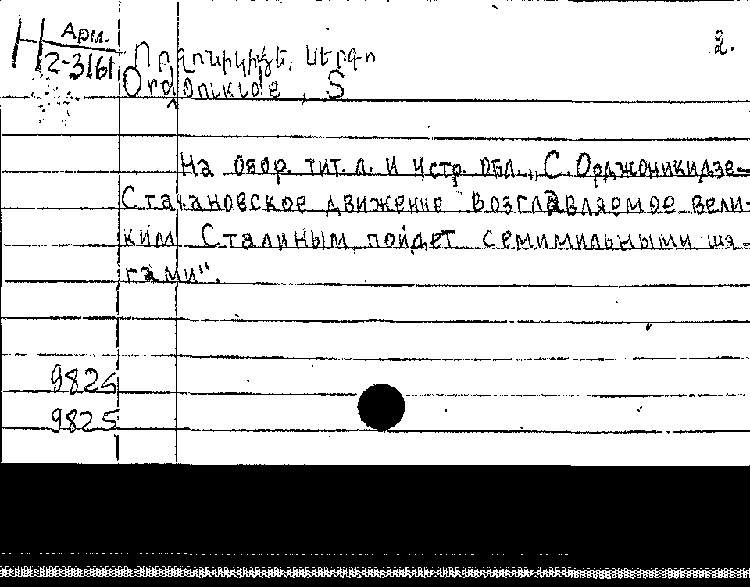 Н Арм.
2-3161
2.
Օրջոնիկիձե, Սերգո
Ordонikide, S
На обор. тит. л. и устр. обл. „С. Орджоникидзе-
Стахановское движение возглавляемое вели-
ким Сталиным пойдет семимильными ша-
гами“.
9824
9825